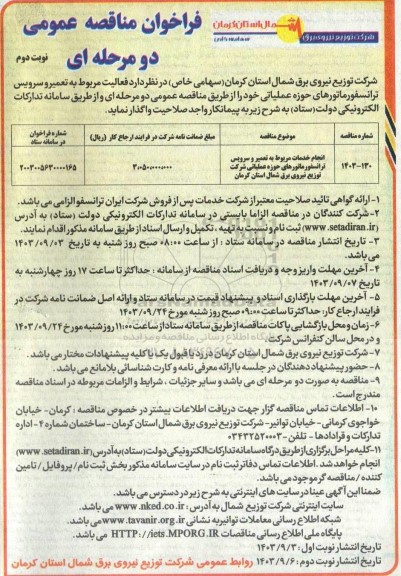 شمال استان کرمان
شرکت توزیع نیروی برق
فراخوان مناقصه عمومی
دو مرحله ای
نوبت دوم
شرکت توزیع نیروی برق شمال استان کرمان(سهامی خاص) در نظر دارد فعالیت مربوط به تعمیر و سرویس
ترانسفورماتورهای حوزه عملیاتی خود را از طریق مناقصه عمومی دو مرحله ای و از طریق سامانه تدارکات
الکترونیکی دولت (ستاد) به شرح زیر به پیمانکار واجد صلاحیت واگذار نماید.
شماره مناقصه
موضوع مناقصه
مبلغ ضمانت نامه شرکت در فرایند ارجاع کار (ریال)
شماره فراخوان در سامانه ستاد
۱۴۰۳-۱۳۰
انجام خدمات مربوط به تعمیر و سرویس
ترانسفورماتورهای حوزه عملیاتی شرکت
توزیع نیروی برق شمال استان کرمان
۳،۰۵۰،۰۰۰،۰۰۰
۲۰۰۳۰۰۵۶۳۰۰۰۰۱۶۵
۱- ارائه گواهی تائید صلاحیت معتبر از شرکت خدمات پس از فروش شرکت ایران ترانسفو الزامی می باشد.
۲-شرکت کنندگان در مناقصه الزاما بایستی در سامانه تدارکات الکترونیکی دولت (ستاد) به آدرس
(www.setadiran.ir) ثبت نام و نسبت به تهیه ، تکمیل و ارسال اسناد از طریق سامانه مذکور اقدام نمایند.
۳- تاریخ انتشار مناقصه در سامانه ستاد : از ساعت ۰۸:۰۰ صبح روز شنبه به تاریخ ۱۴۰۳/۰۹/۰۳
می باشد.
۴- آخرین مهلت واریز وجه و دریافت اسناد مناقصه از سامانه : حداکثر تا ساعت ۱۷ روز چهارشنبه به
تاریخ ۱۴۰۳/۰۹/۰۷
۵- آخرین مهلت بارگذاری اسناد و پیشنهاد قیمت در سامانه ستاد و ارائه اصل ضمانت نامه شرکت در
فرایند ارجاع کار: حداکثر تا ساعت ۰۹:۰۰ صبح روز شنبه مورخ ۱۴۰۳/۰۹/۲۴
۶- زمان و محل بازگشایی پاکات مناقصه از طریق سامانه ستاد از ساعت ۱۱:۰۰ روز شنبه مورخ ۱۴۰۳/۰۹/۲۴
و در محل سالن کنفرانس شرکت
۷- شرکت توزیع نیروی برق شمال استان کرمان در رد یا قبول یک یا کلیه پیشنهادات مختار می باشد.
۸- حضور پیشنهاد دهندگان در جلسه با ارائه معرفی نامه و کارت شناسائی بلامانع می باشد .
۹- مناقصه به صورت دو مرحله ای می باشد و سایر جزئیات ، شرایط و الزامات مربوطه در اسناد مناقصه
مندرج است.
۱۰- اطلاعات تماس مناقصه گزار جهت دریافت اطلاعات بیشتر در خصوص مناقصه : کرمان- خیابان
خواجوی کرمانی- خیابان توانیر- شرکت توزیع نیروی برق شمال استان کرمان- ساختمان شماره ۲- اداره
تدارکات و قراداد‌ها - تلفن ۰۳۴۳۲۵۲۰۰۰۳
۱۱-کلیه مراحل برگزاری از طریق درگاه سامانه تدارکات الکترونیکی دولت (ستاد) به آدرس (www.setadiran.ir)
انجام خواهد شد. اطلاعات تماس دفاتر ثبت نام در سایت سامانه مذکور بخش ثبت نام / پروفایل / تامین
کننده / مناقصه گر موجود می باشد.
ضمنا این آگهی عینا در سایت های اینترنتی به شرح زیر در دسترس می باشد.
سایت اینترنتی شرکت توزیع شمال به آدرس : www.nked.co.ir می باشد.
شبکه اطلاع رسانی معاملات توانیر به نشانی www.tavanir.org.ir می باشد.
پایگاه ملی اطلاع رسانی مناقصات HTTP://iets.MPORG.IR می باشد.
تاریخ انتشار نوبت اول : ۱۴۰۳/۹/۳
تاریخ انتشار نوبت دوم : ۱۴۰۳/۹/۶
روابط عمومی شرکت توزیع نیروی برق شمال استان کرمان